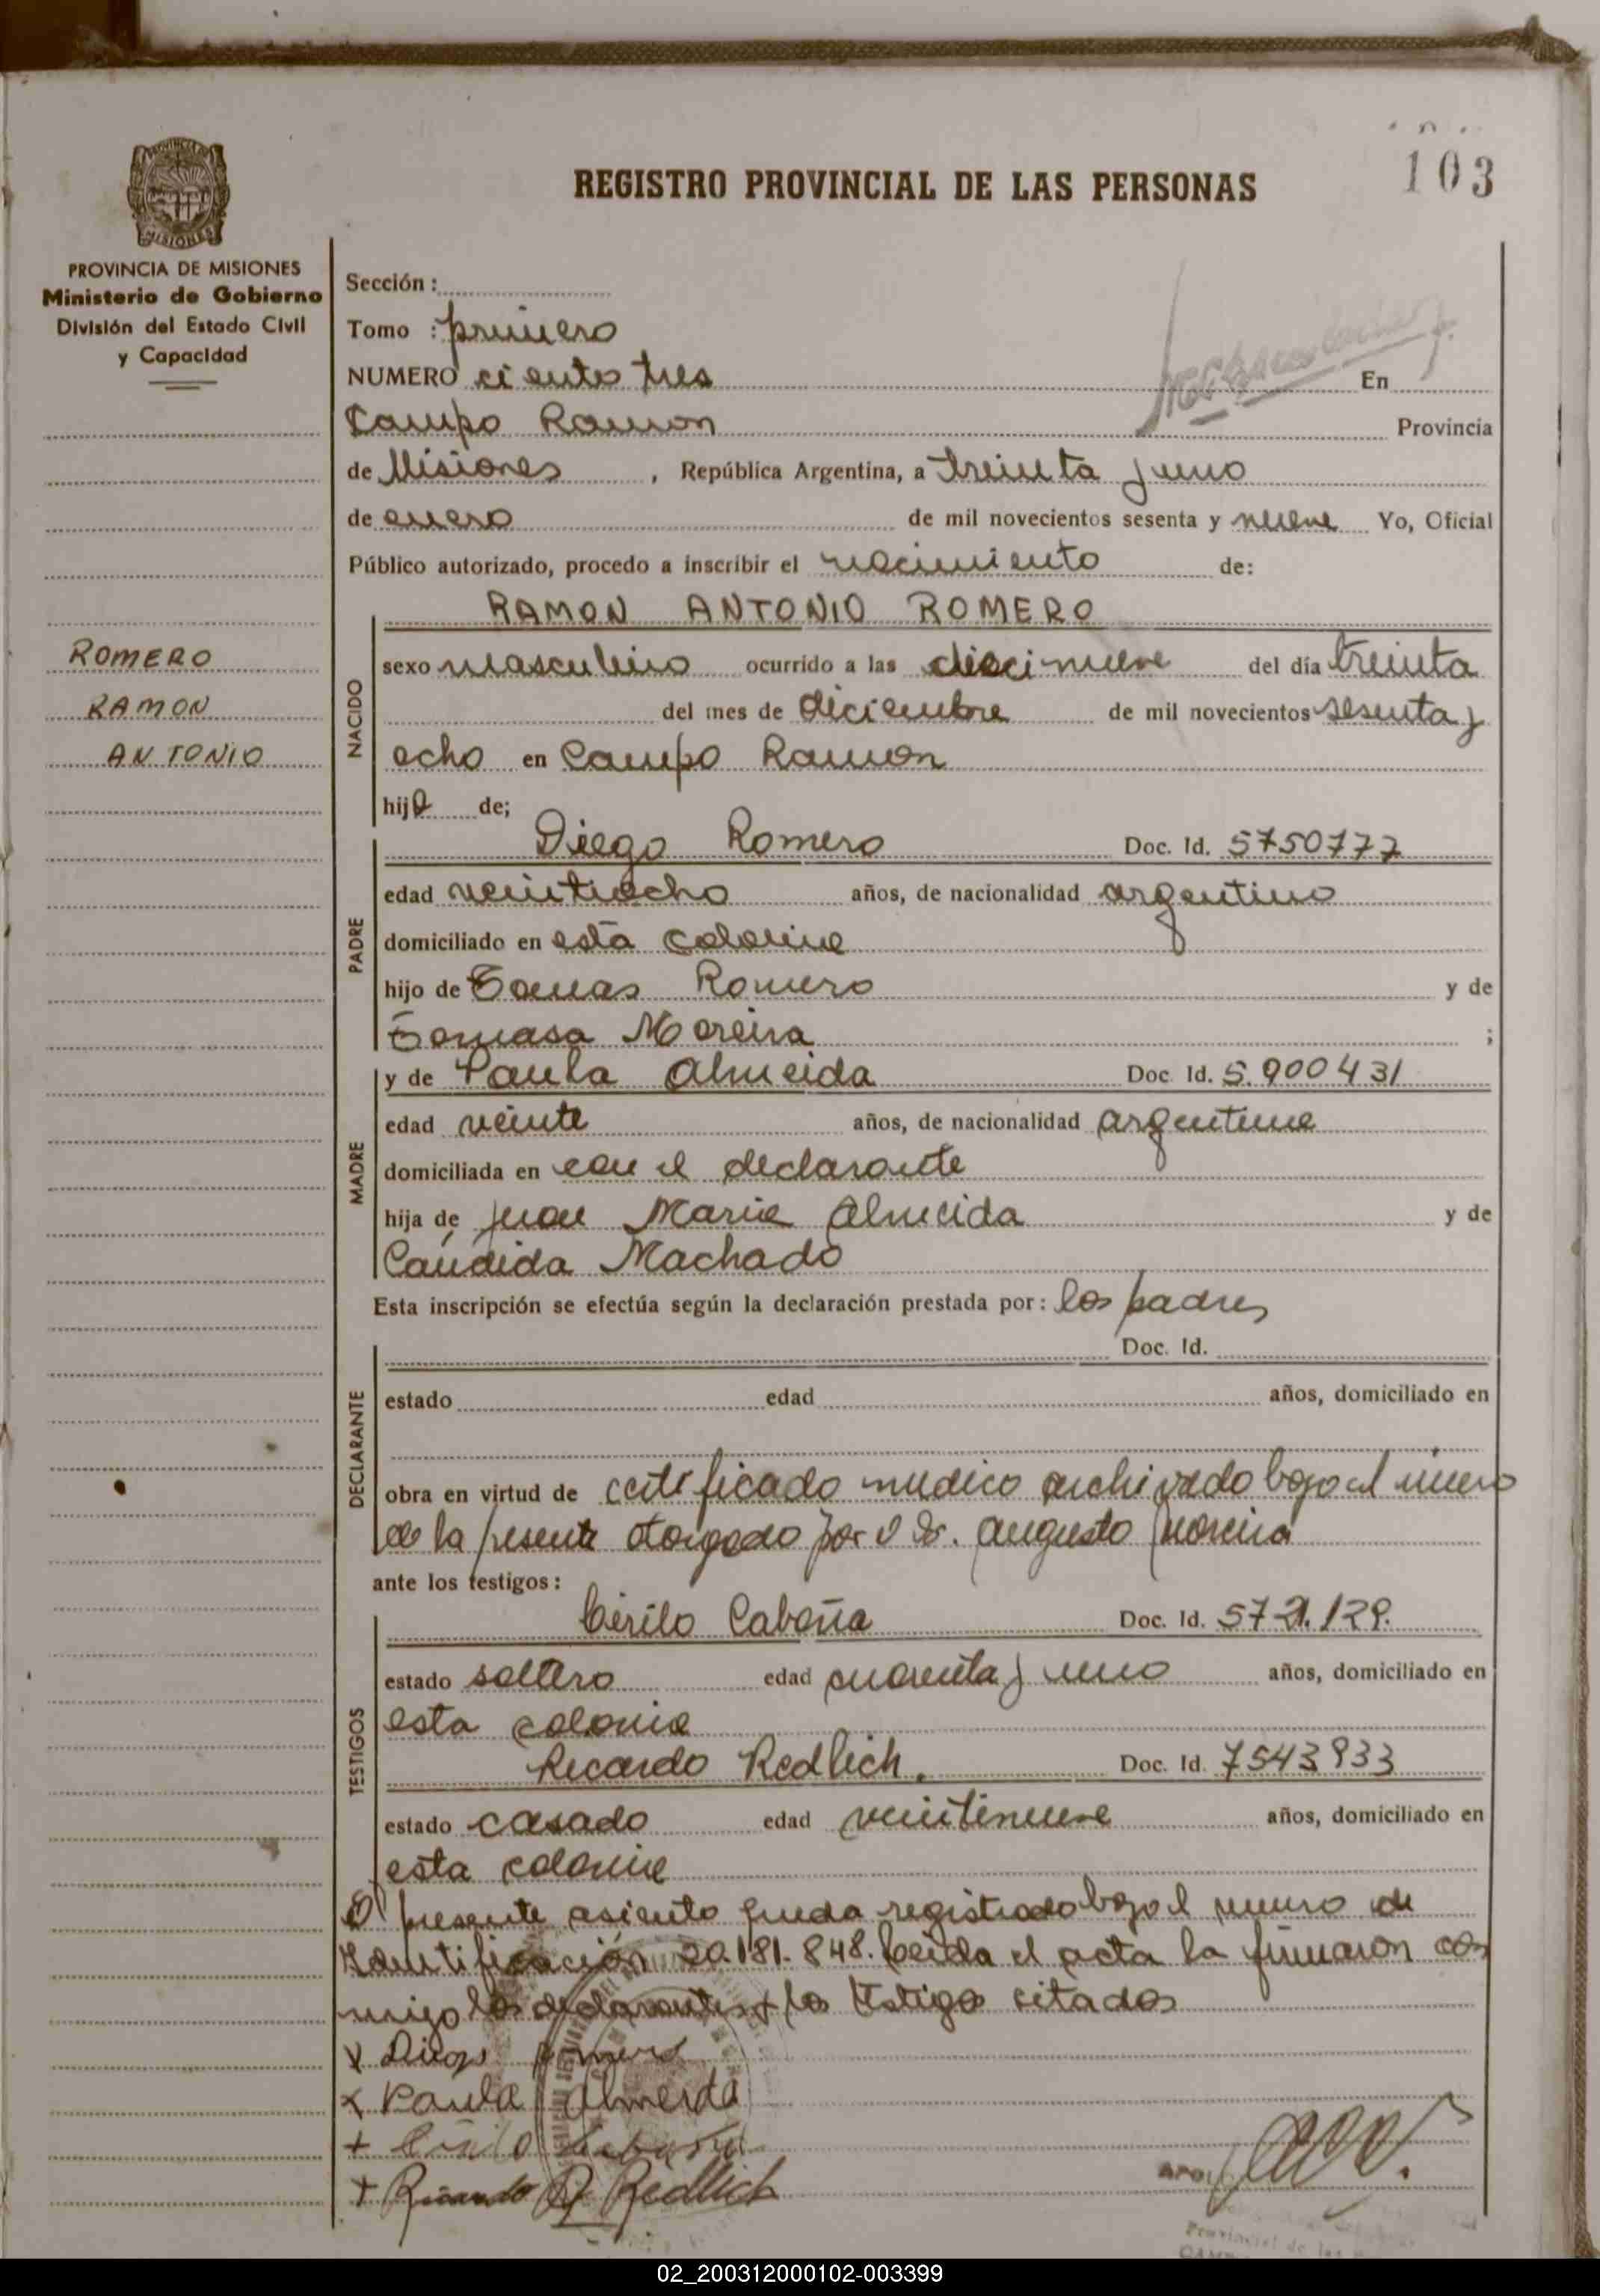 103
REGISTRO PROVINCIAL DE LAS PERSONAS
PROVINCIA DE MISIONES
MISIONES
PROVINCIA DE MISIONES
Ministerio de Gobierno
División del Estado Civil
y Capacidad
Sección :
Tomo : primero
NUMERO ciento tres En
Campo Ramon Provincia
de Misiones , República Argentina, a treinta y uno
de enero de mil novecientos sesenta y nueve Yo, Oficial
Público autorizado, procedo a inscribir el nacimiento de:
RAMON ANTONIO ROMERO
ROMERO
RAMON
ANTONIO
NACIDO
sexo masculino ocurrido a las diecinueve del día treinta
del mes de diciembre de mil novecientos sesenta y
ocho en Campo Ramon
hijo de;
PADRE
Diego Romero Doc. Id. 5750777
edad veintiocho años, de nacionalidad argentino
domiciliado en esta colonia
hijo de Tomas Romero y de
Tomasa Moreira ;
MADRE
y de Paula Almeida Doc. Id. 5.900431
edad veinte años, de nacionalidad argentina
domiciliada en con el declarante
hija de Juan Maria Almeida y de
Candida Machado
Esta inscripción se efectúa según la declaración prestada por: los padres
DECLARANTE
Doc. Id.
estado edad años, domiciliado en
obra en virtud de certificado medico archivado bajo el numero
de la presente otorgado por el Dr. Augusto Moreira
ante los testigos:
TESTIGOS
Cirilo Cabaña Doc. Id. 5721.129.
estado soltero edad cuarenta y uno años, domiciliado en
esta colonia
Ricardo Redlich. Doc. Id. 7543933
estado casado edad veintinueve años, domiciliado en
esta colonia
El presente asiento queda registrado bajo el numero de
Identificación 20.181.848. Leida el acta la firmaron con
migo los declarantes y los testigos citados
x Diego Romero
x Paula Almeida
+ Cirilo
+ Ricardo Redlich
Provincial de las
02_200312000102-003399